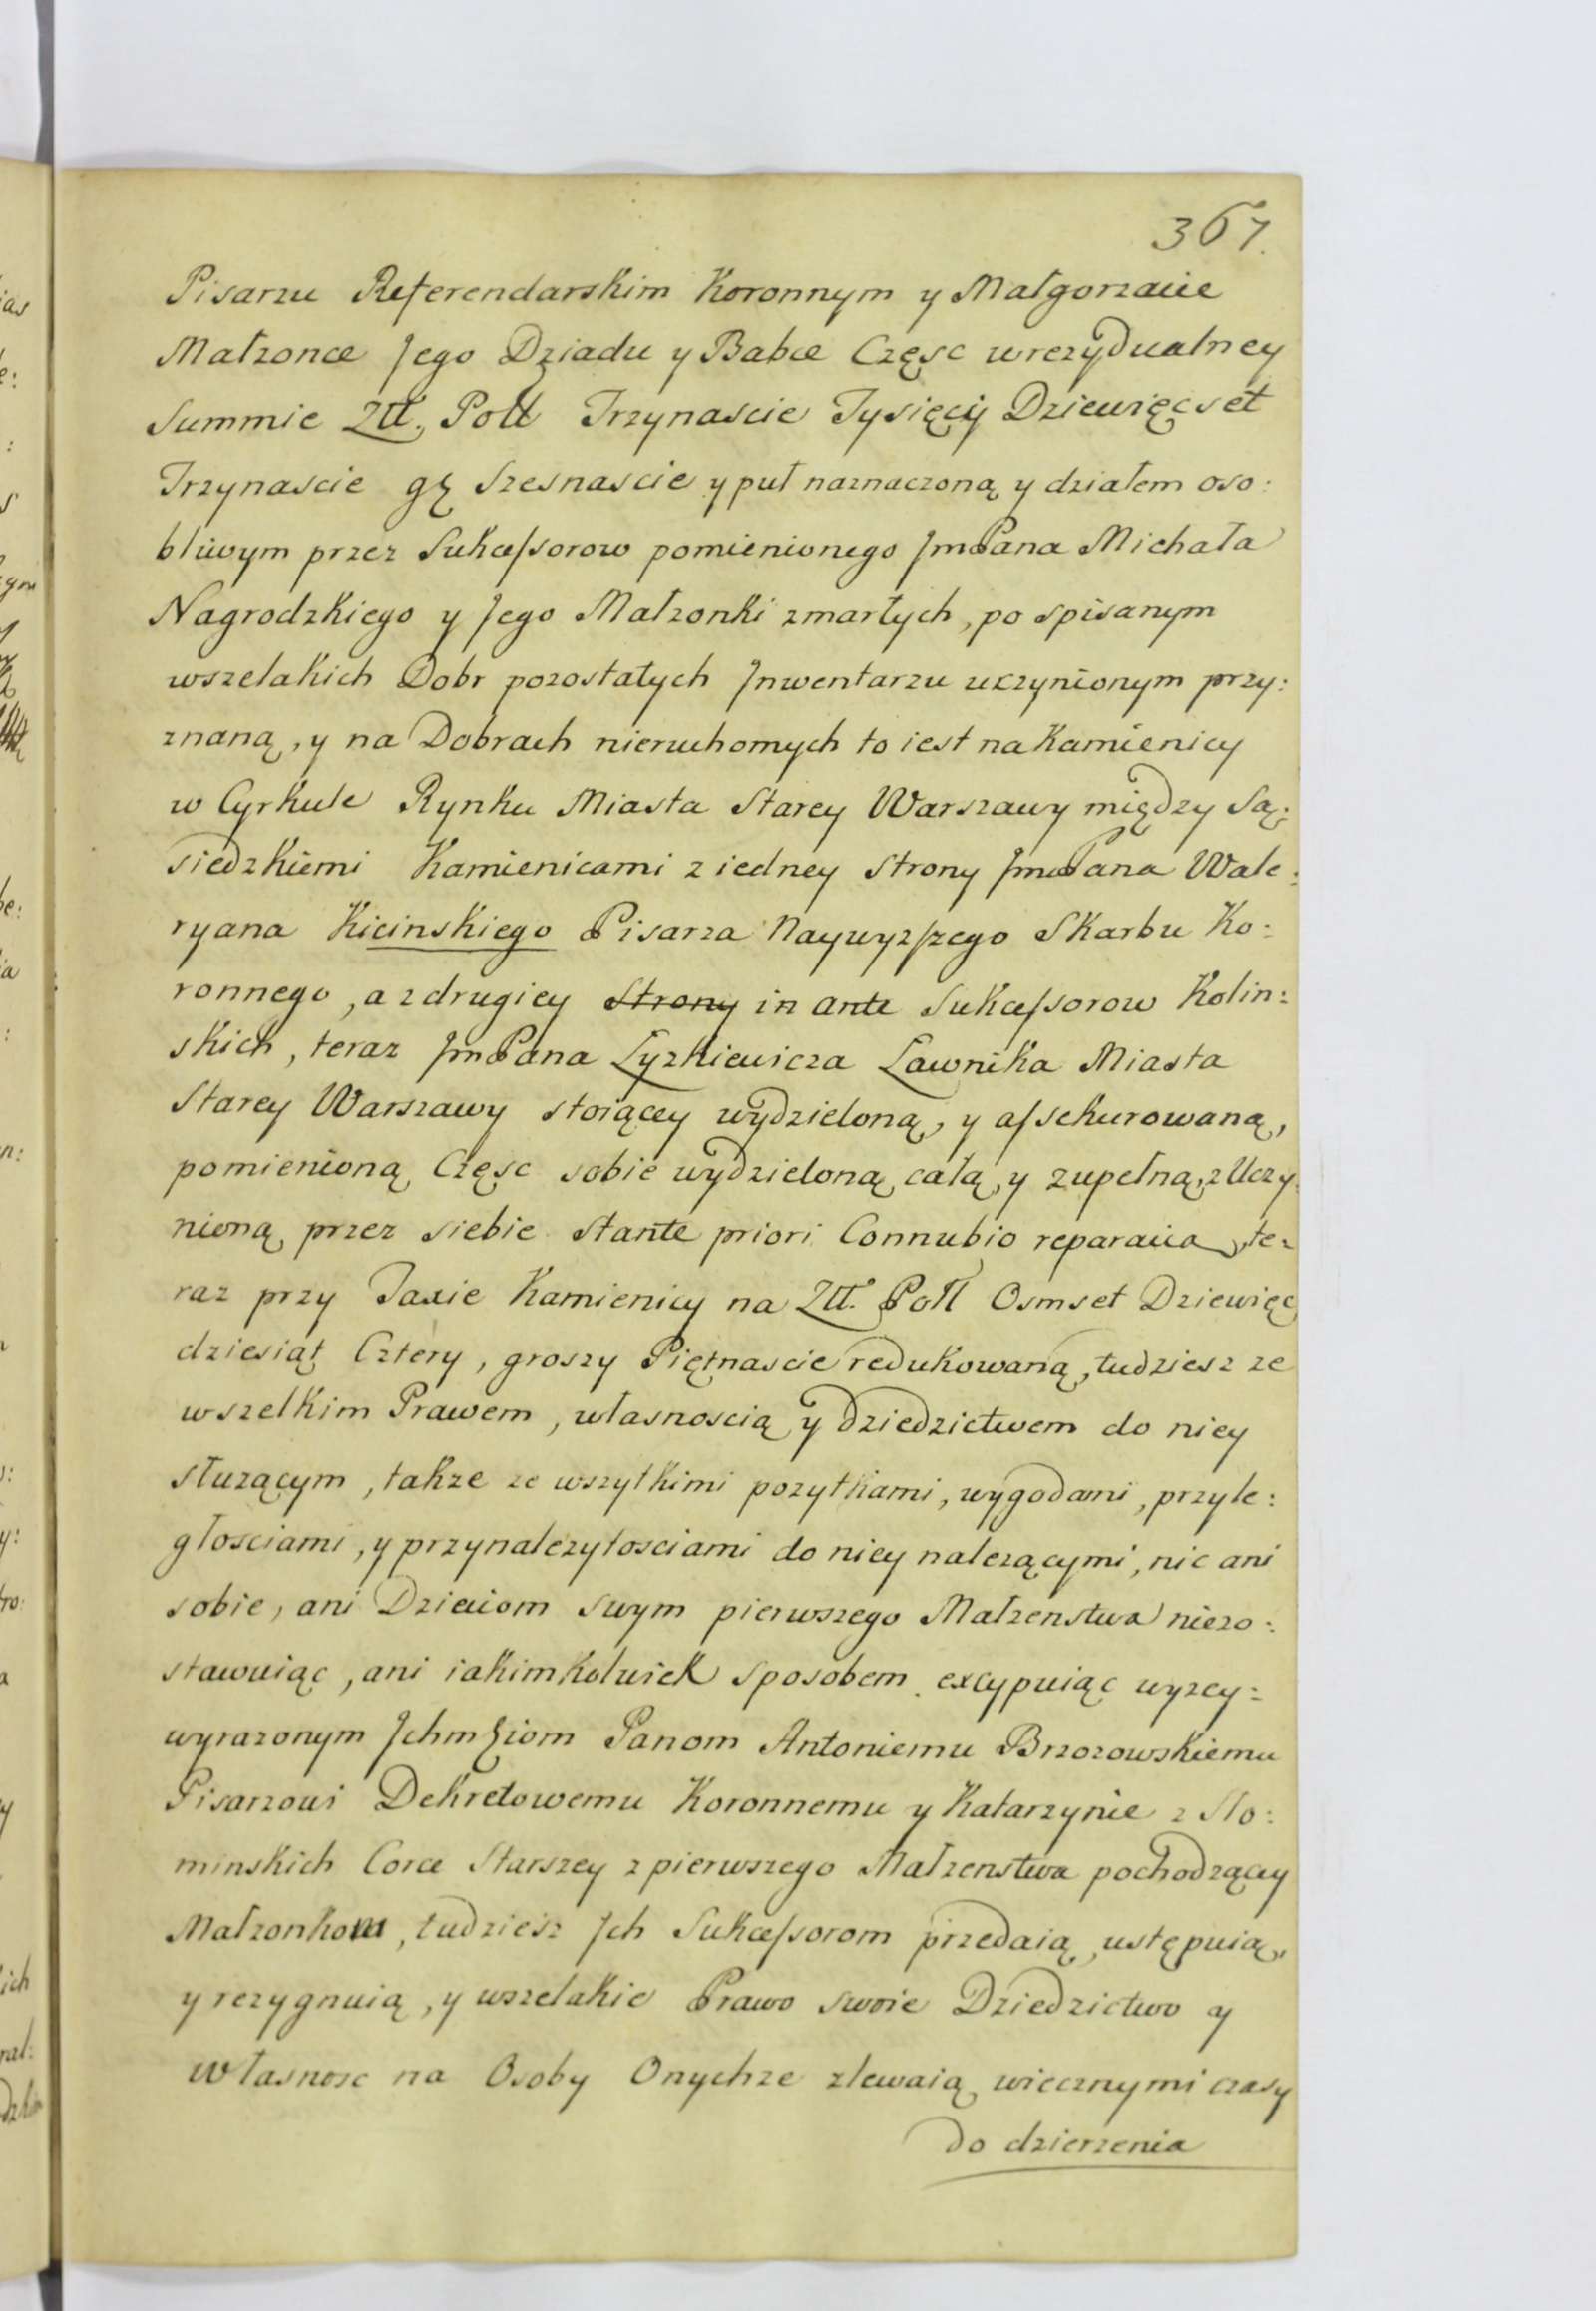 367.
Pisarzu Referendarskim Koronnym y Małgorzacie
Małzonce Jego Dziadu y Babce Częsc w rezydualney
Summie Złł. Poll Trzynascie Tysięcy Dziewięcset
Trzynascie gr Szesnascie y puł naznaczoną y działem oso:
bliwym przez Sukcessorow pomienionego JmPana Michała
Nagrodzkiego y Jego Małzonki zmarłych, po spisanym
wszelakich Dobr pozostałych Jnwentarzu uczynionym przy:
znaną, y na Dobrach nieruchomych to iest na Kamienicy
w Cyrkule Rynku Miasta Starey Warszawy między Są:
siedzkiemi Kamienicami z iedney Strony JmPana Wale:
ryana Kicinskiego Pisarza Naywyzszego Skarbu Ko:
ronnego, a z drugiey Strony in ante Sukcessorow Kolin:
skich, teraz JmPana Łyzkiewicza Ławnika Miasta
Starey Warszawy stoiącey wydzieloną, y assekurowaną,
pomienioną Częsc sobie wydzieloną całą, y zupełną, z Uczy:
nioną przez siebie stante priori Connubio reparacią, te:
raz przy Taxie Kamienicy na Złł. Poll Osmset Dziewięc
dziesiąt Cztery, groszy Piętnascie redukowaną, tudziesz ze
wszelkim Prawem, własnoscią y dziedzictwem do niey
słuzącym, takze ze wszytkimi pozytkami, wygodami, przyle:
głosciami, y przynalezytosciami do niey nalezącymi, nic ani
sobie, ani Dzieciom swym pierwszego Małzenstwa niezo:
stawuiąc, ani iakimkolwiek sposobem excypuiąc wyzey:
wyrazonym Jchmściom Panom Antoniemu Brzozowskiemu
Pisarzowi Dekretowemu Koronnemu y Katarzynie z Sło:
minskich Corce Starszey z pierwszego Małzenstwa pochodzącey
Małzonkom, tudziesz Jch Sukcessorom przedaią, ustępuią,
y rezygnuią, y wszelakie Prawo swoie Dziedzictwo y
Własnosc na Osoby Onychze zlewaią wiecznymi czasy
do dzierzenia